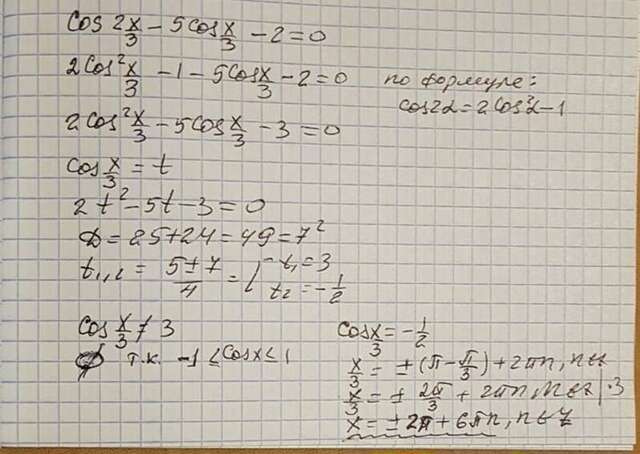 cos 2x/3 - 5cos x/3 - 2 = 0
2cos² x/3 - 1 - 5cos x/3 - 2 = 0
по формуле:
cos2α = 2cos²α - 1
2cos² x/3 - 5cos x/3 - 3 = 0
cos x/3 = t
2t² - 5t - 3 = 0
D = 25 + 24 = 49 = 7²
t₁,₂ = (5 ± 7)/4 = [ t₁ = 3
t₂ = -1/2
cos x/3 ≠ 3
т.к. -1 ≤ cosx ≤ 1
cos x/3 = -1/2
x/3 = ±(π - π/3) + 2πn, n∈z
x/3 = ± 2π/3 + 2πn, n∈z | ·3
x = ± 2π + 6πn, n∈z